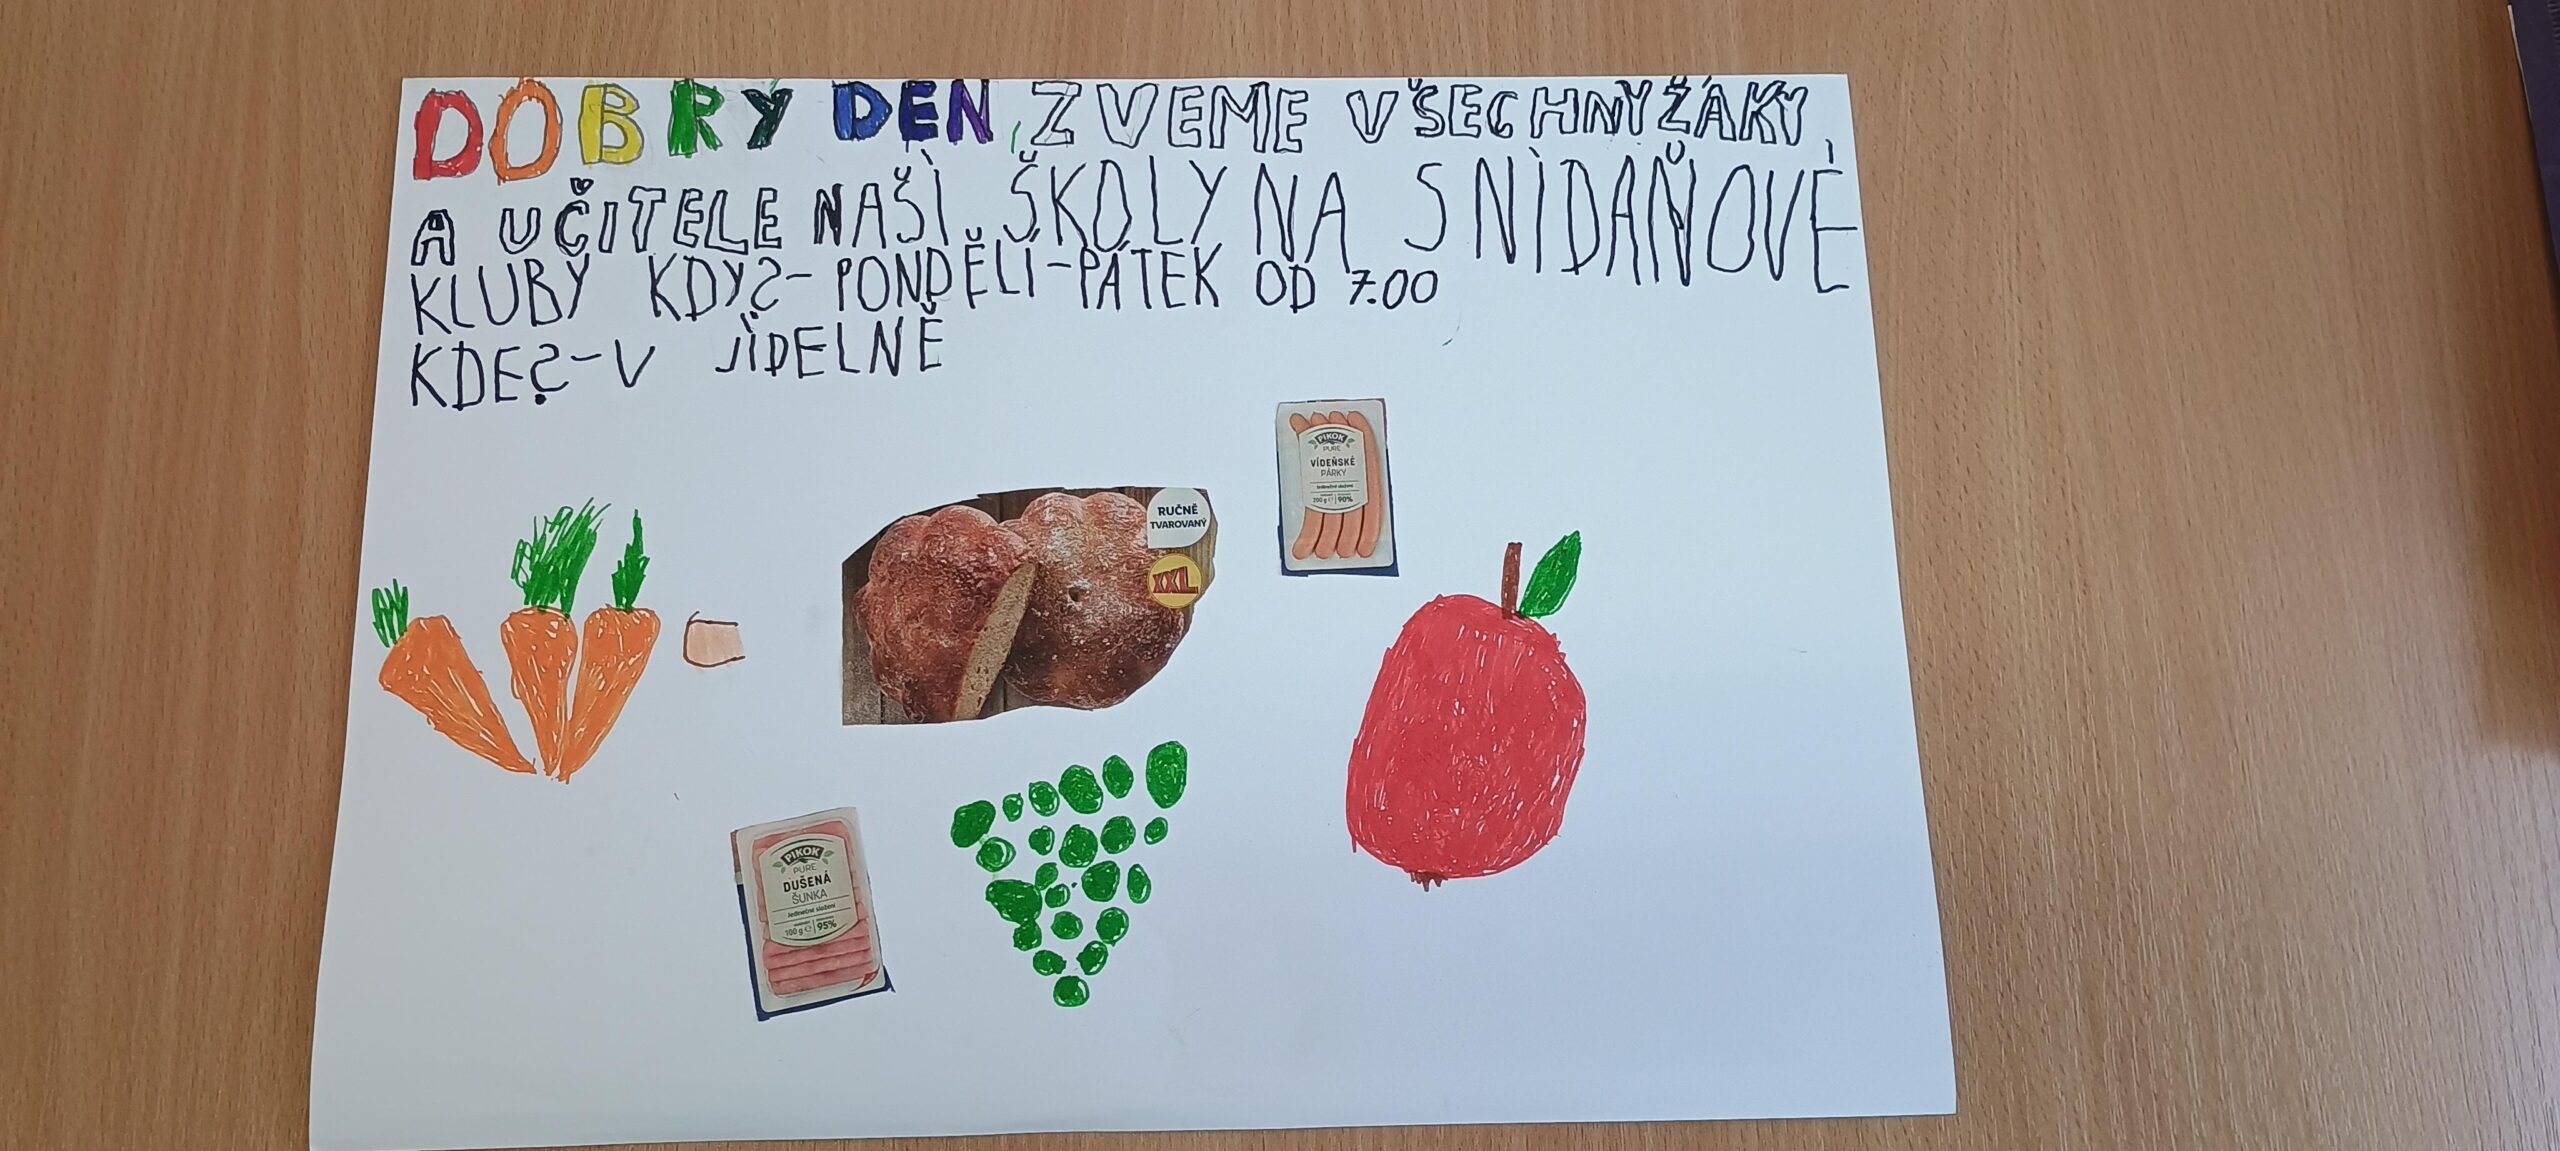 DOBRY DEN, ZVEME VŠECHNY ŽÁKY
A UČITELE NAŠÍ ŠKOLY NA SNÍDAŇOVÉ
KLUBY KDY?-PONDĚLÍ-PÁTEK OD 7.00
KDE?-V JÍDELNĚ
PIKOK
PURE
VÍDEŇSKÉ
PÁRKY
Jedinečné složení
200 g e 90%
RUČNĚ
TVAROVANÝ
XXL
PIKOK
PURE
DUŠENÁ
ŠUNKA
Jedinečné složení
100 g e 95%